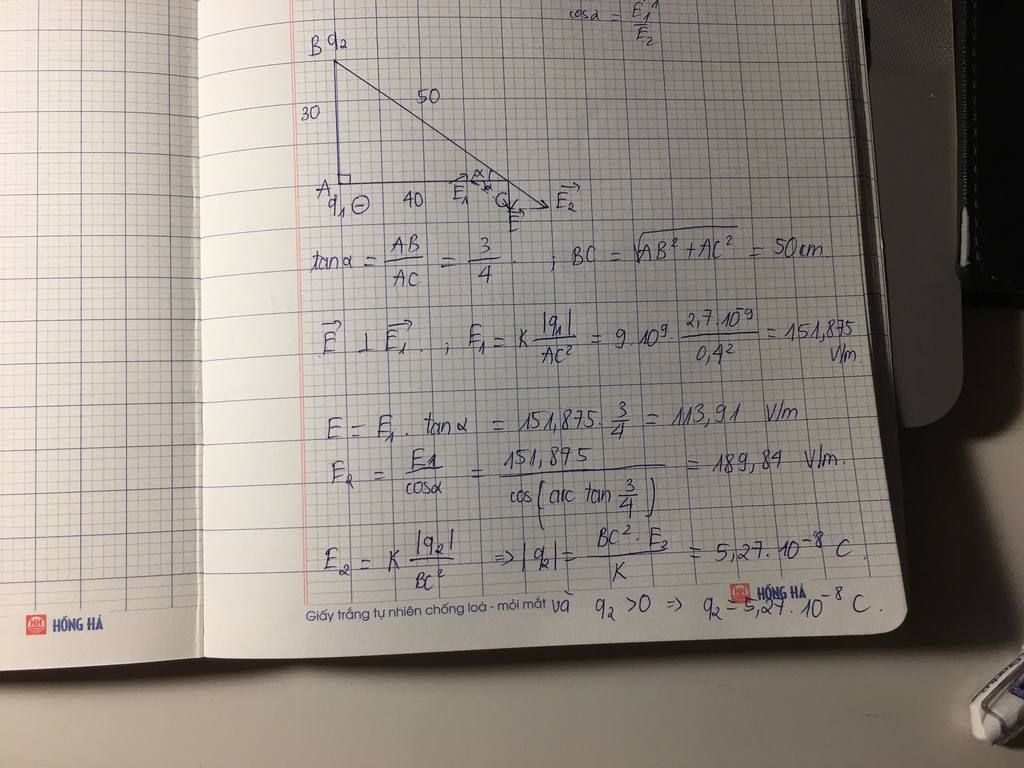 cosα = E₁/E₂
B q₂
30
50
A
q₁ ⊖
40
E₁→
α
C
E→
E₂→
tanα = AB/AC = 3/4 . ; BC = √(AB² + AC²) = 50cm
E→ ⊥ E₁→ . ; E₁ = K |q₁|/AC² = 9.10⁹. 2,7.10⁻⁹/0,4² = 151,875 V/m
E = E₁ . tanα = 151,875. 3/4 = 113,91 V/m
E₂ = E1/cosα = 151,875/cos(arc tan 3/4) = 189,84 V/m.
E₂ = K |q₂|/BC² => |q₂| = BC². E₂/K = 5,27.10⁻⁸ C.
Giấy trắng tự nhiên chống loá - mỏi mắt
và q₂ >0 => q₂ = 5,27.10⁻⁸ C.
HH HỒNG HÀ
HH HỒNG HÀ